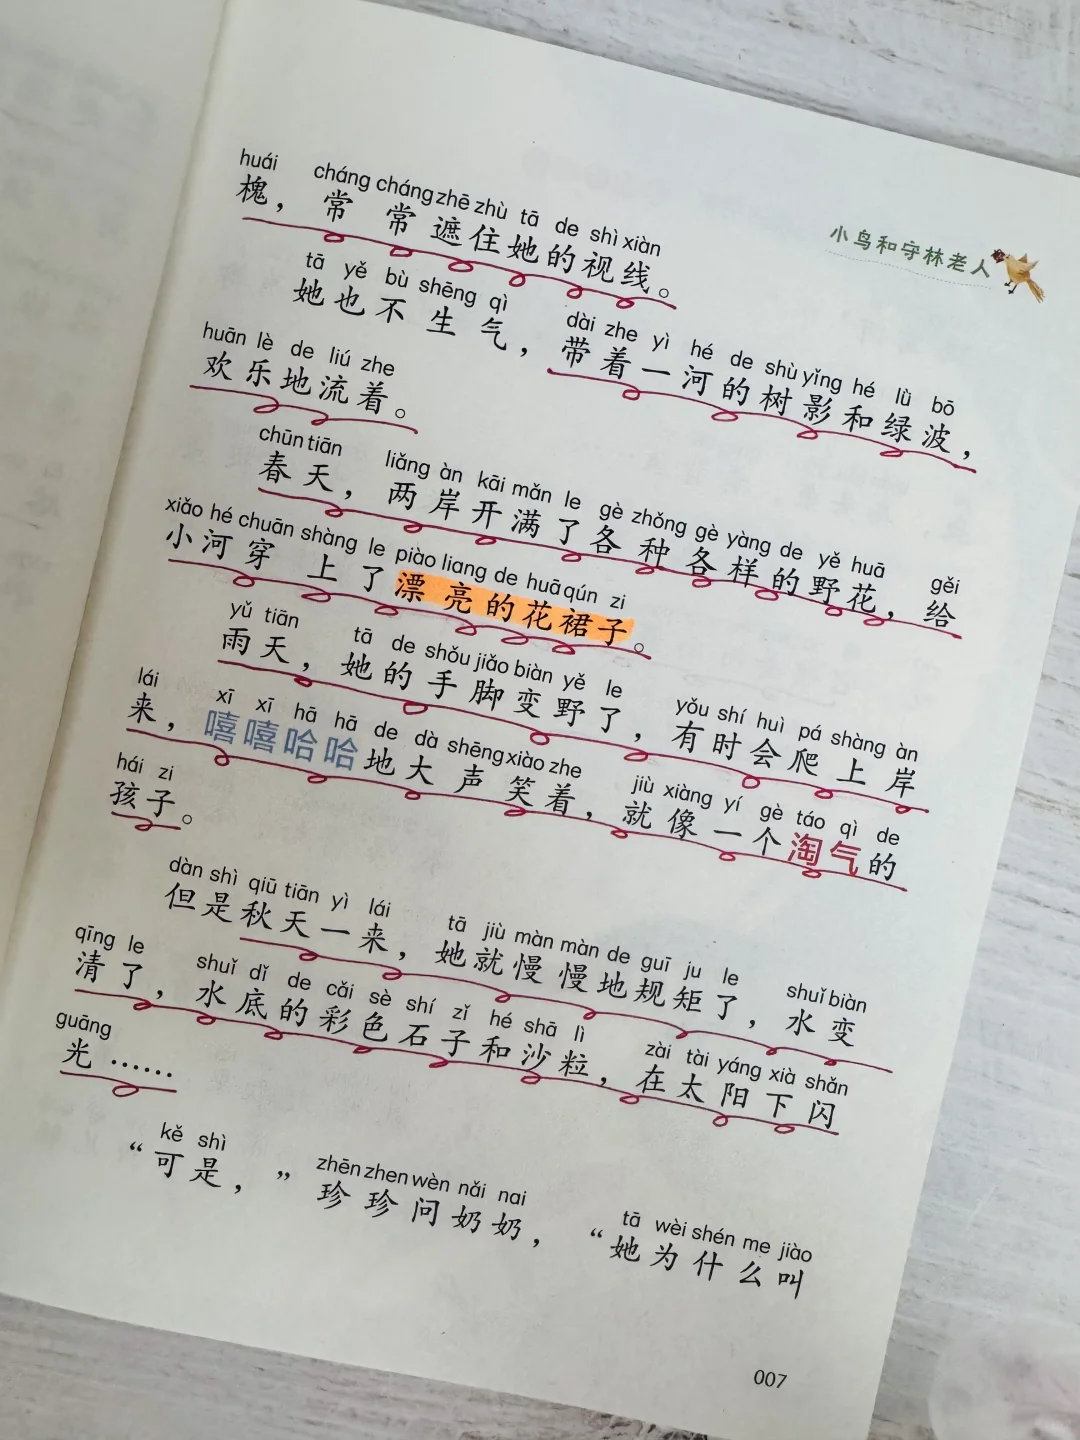 小鸟和守林老人
huái cháng cháng zhē zhù tā de shì xiàn
槐，常常遮住她的视线。
tā yě bù shēng qì dài zhe yì hé de shù yǐng hé lǜ bō
她也不生气，带着一河的树影和绿波，
huān lè de liú zhe
欢乐地流着。
chūn tiān liǎng àn kāi mǎn le gè zhǒng gè yàng de yě huā gěi
春天，两岸开满了各种各样的野花，给
xiǎo hé chuān shàng le piào liang de huā qún zi
小河穿上了漂亮的花裙子。
yǔ tiān tā de shǒu jiǎo biàn yě le yǒu shí huì pá shàng àn
雨天，她的手脚变野了，有时会爬上岸
lái xī xī hā hā de dà shēng xiào zhe jiù xiàng yí gè táo qì de
来，嘻嘻哈哈地大声笑着，就像一个淘气的
hái zi
孩子。
dàn shì qiū tiān yì lái tā jiù màn màn de guī ju le shuǐ biàn
但是秋天一来，她就慢慢地规矩了，水变
qīng le shuǐ dǐ de cǎi sè shí zǐ hé shā lì zài tài yáng xià shǎn
清了，水底的彩色石子和沙粒，在太阳下闪
guāng
光……
kě shì zhēn zhen wèn nǎi nai tā wèi shén me jiào
“可是，”珍珍问奶奶，“她为什么叫
007